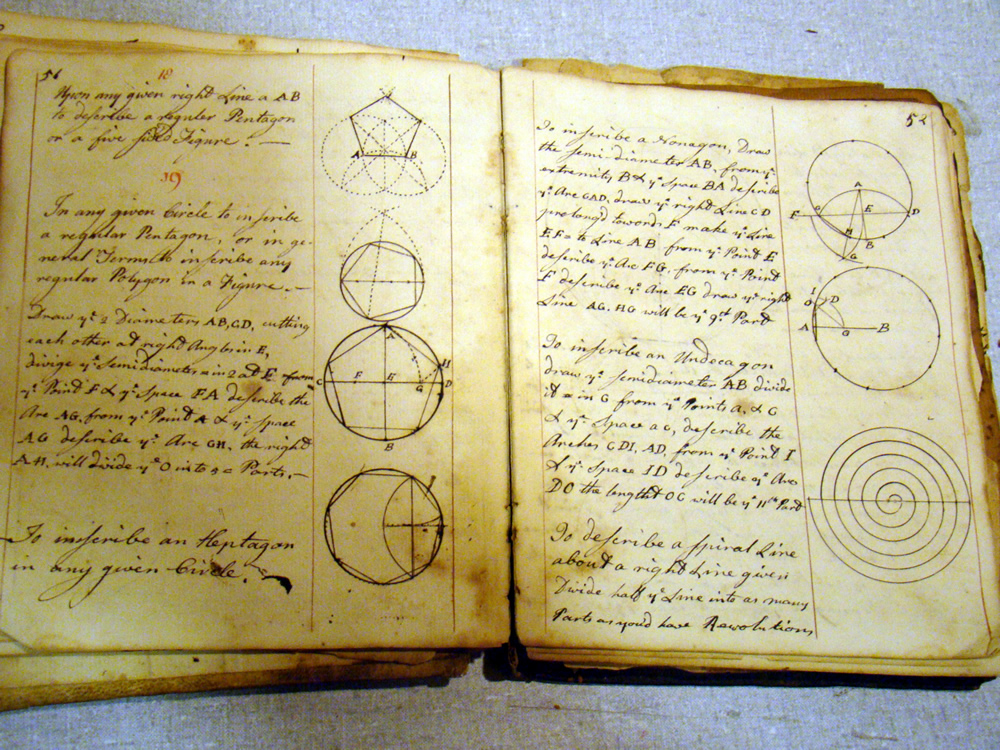 56
18
Upon any given right Line a AB
to describe a regular Pentagon
or a five sided Figure. —
19
In any given Circle to inscribe
a regular Pentagon, or in ge-
neral Terms to inscribe any
regular Polygon in a Figure. —
Draw yᵉ 2 Diameters AB, CD, cutting
each other at right Angles in E,
divige yᵉ semidiameter = in 2 at F from
yᵉ Point F & yᵉ Space FA describe the
Arc AG, from yᵉ Point A & yᵉ space
AG describe yᵉ Arc GH, the right
AH, will divide yᵉ O into 5 = Parts. —
To inscribe an Heptagon
in any given Circle.
A B
A
C F E G D H
B
52
To inscribe a Nonagon, Draw
the semi-diameter AB, from yᵉ
extremity B & yᵉ Space BA describe
yᵉ Arc CAD, draw yᵉ right Line CD
prolongd towords F make yᵉ Line
EF = to Line AB from yᵉ Point E
describe yᵉ Arc FG, from yᵉ Point
F describe yᵉ Arc EG draw yᵉ right
Line AG, HG will be yᵉ 9ᵗ Part
To inscribe an Undecagon
draw yᵉ semidiameter AB divide
it = in G from yᵉ Points A, & C
& yᵉ Space AC, describe the
Arches CDI, AD, from yᵉ Point I
& yᵉ Space ID describe yᵉ Arc
DO the lenght OC will be yᵉ 11ᵗʰ Part
To describe a spiral Line
about a right Line given
Divide half yᵉ Line into as many
Parts as you'd have Revolutions
A
F C E D
H B
G
I D
O
A G B